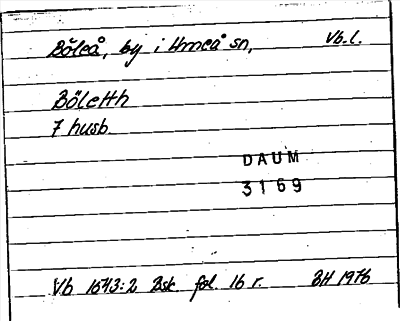 Böleå, by i Umeå sn, Vb.l.
Böletth
7 husb
DAUM
3169
Vb 1543:2 Bsk. fol. 16 r. BH 1976